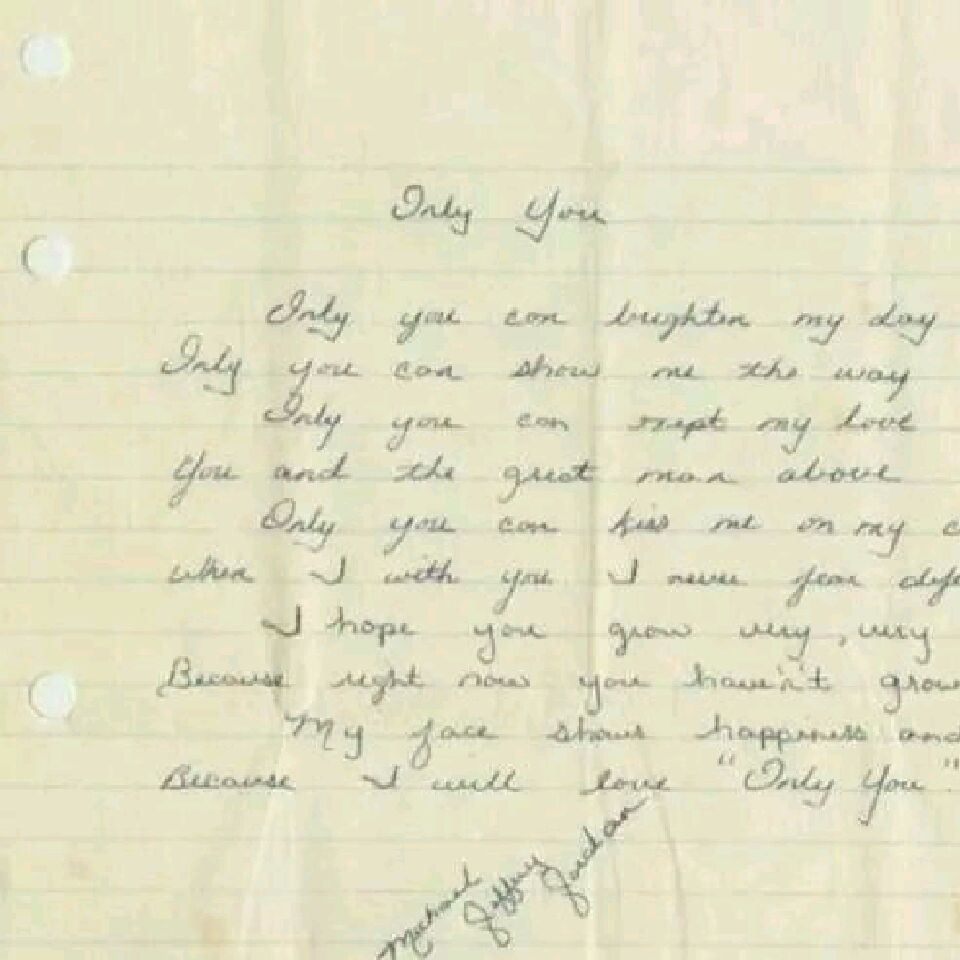 Only You
Only you can brighten my day
Only you can show me the way
Only you can my love
You and the great man above
Only you can kiss me on my
when I with you I never fear
I hope you grow very, very
Because right now you haven't
My face shows happiness and
Because I will love "Only You".
Michael Jeffrey Jordan